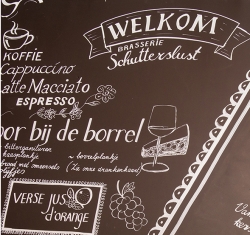 WELKOM
BRASSERIE
Schutterslust
KOFFIE
Cappuccino
atte Macciato
ESPRESSO
oor bij de borrel
bittergarnituren
kaasplankje
~ borrelplankje
(Zie onze drankenkaart)
VERSE JUS
d'ORANGE